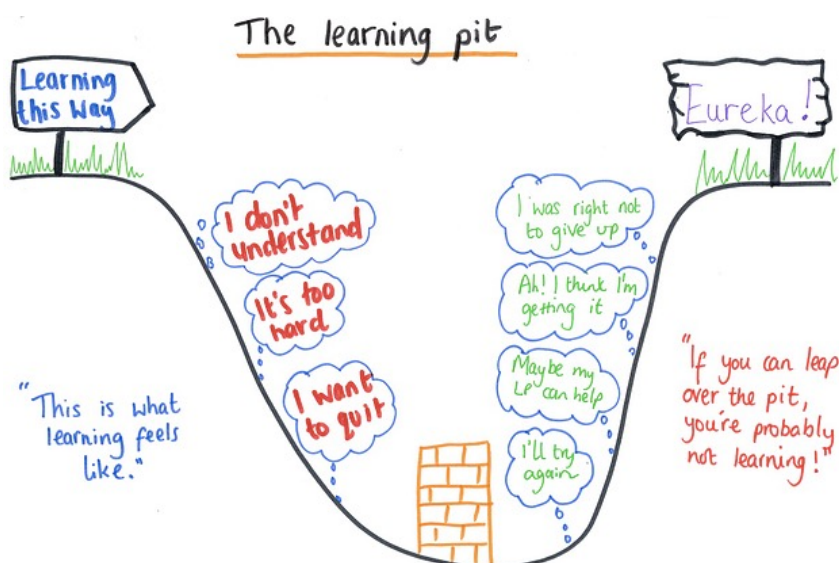 The learning pit
Learning
this way
Eureka!
I don't
understand
It's too
hard
I want
to quit
I was right not
to give up
Ah! I think I'm
getting it
Maybe my
LP can help
I'll try
again
"This is what
learning feels
like."
"If you can leap
over the pit,
you're probably
not learning!"